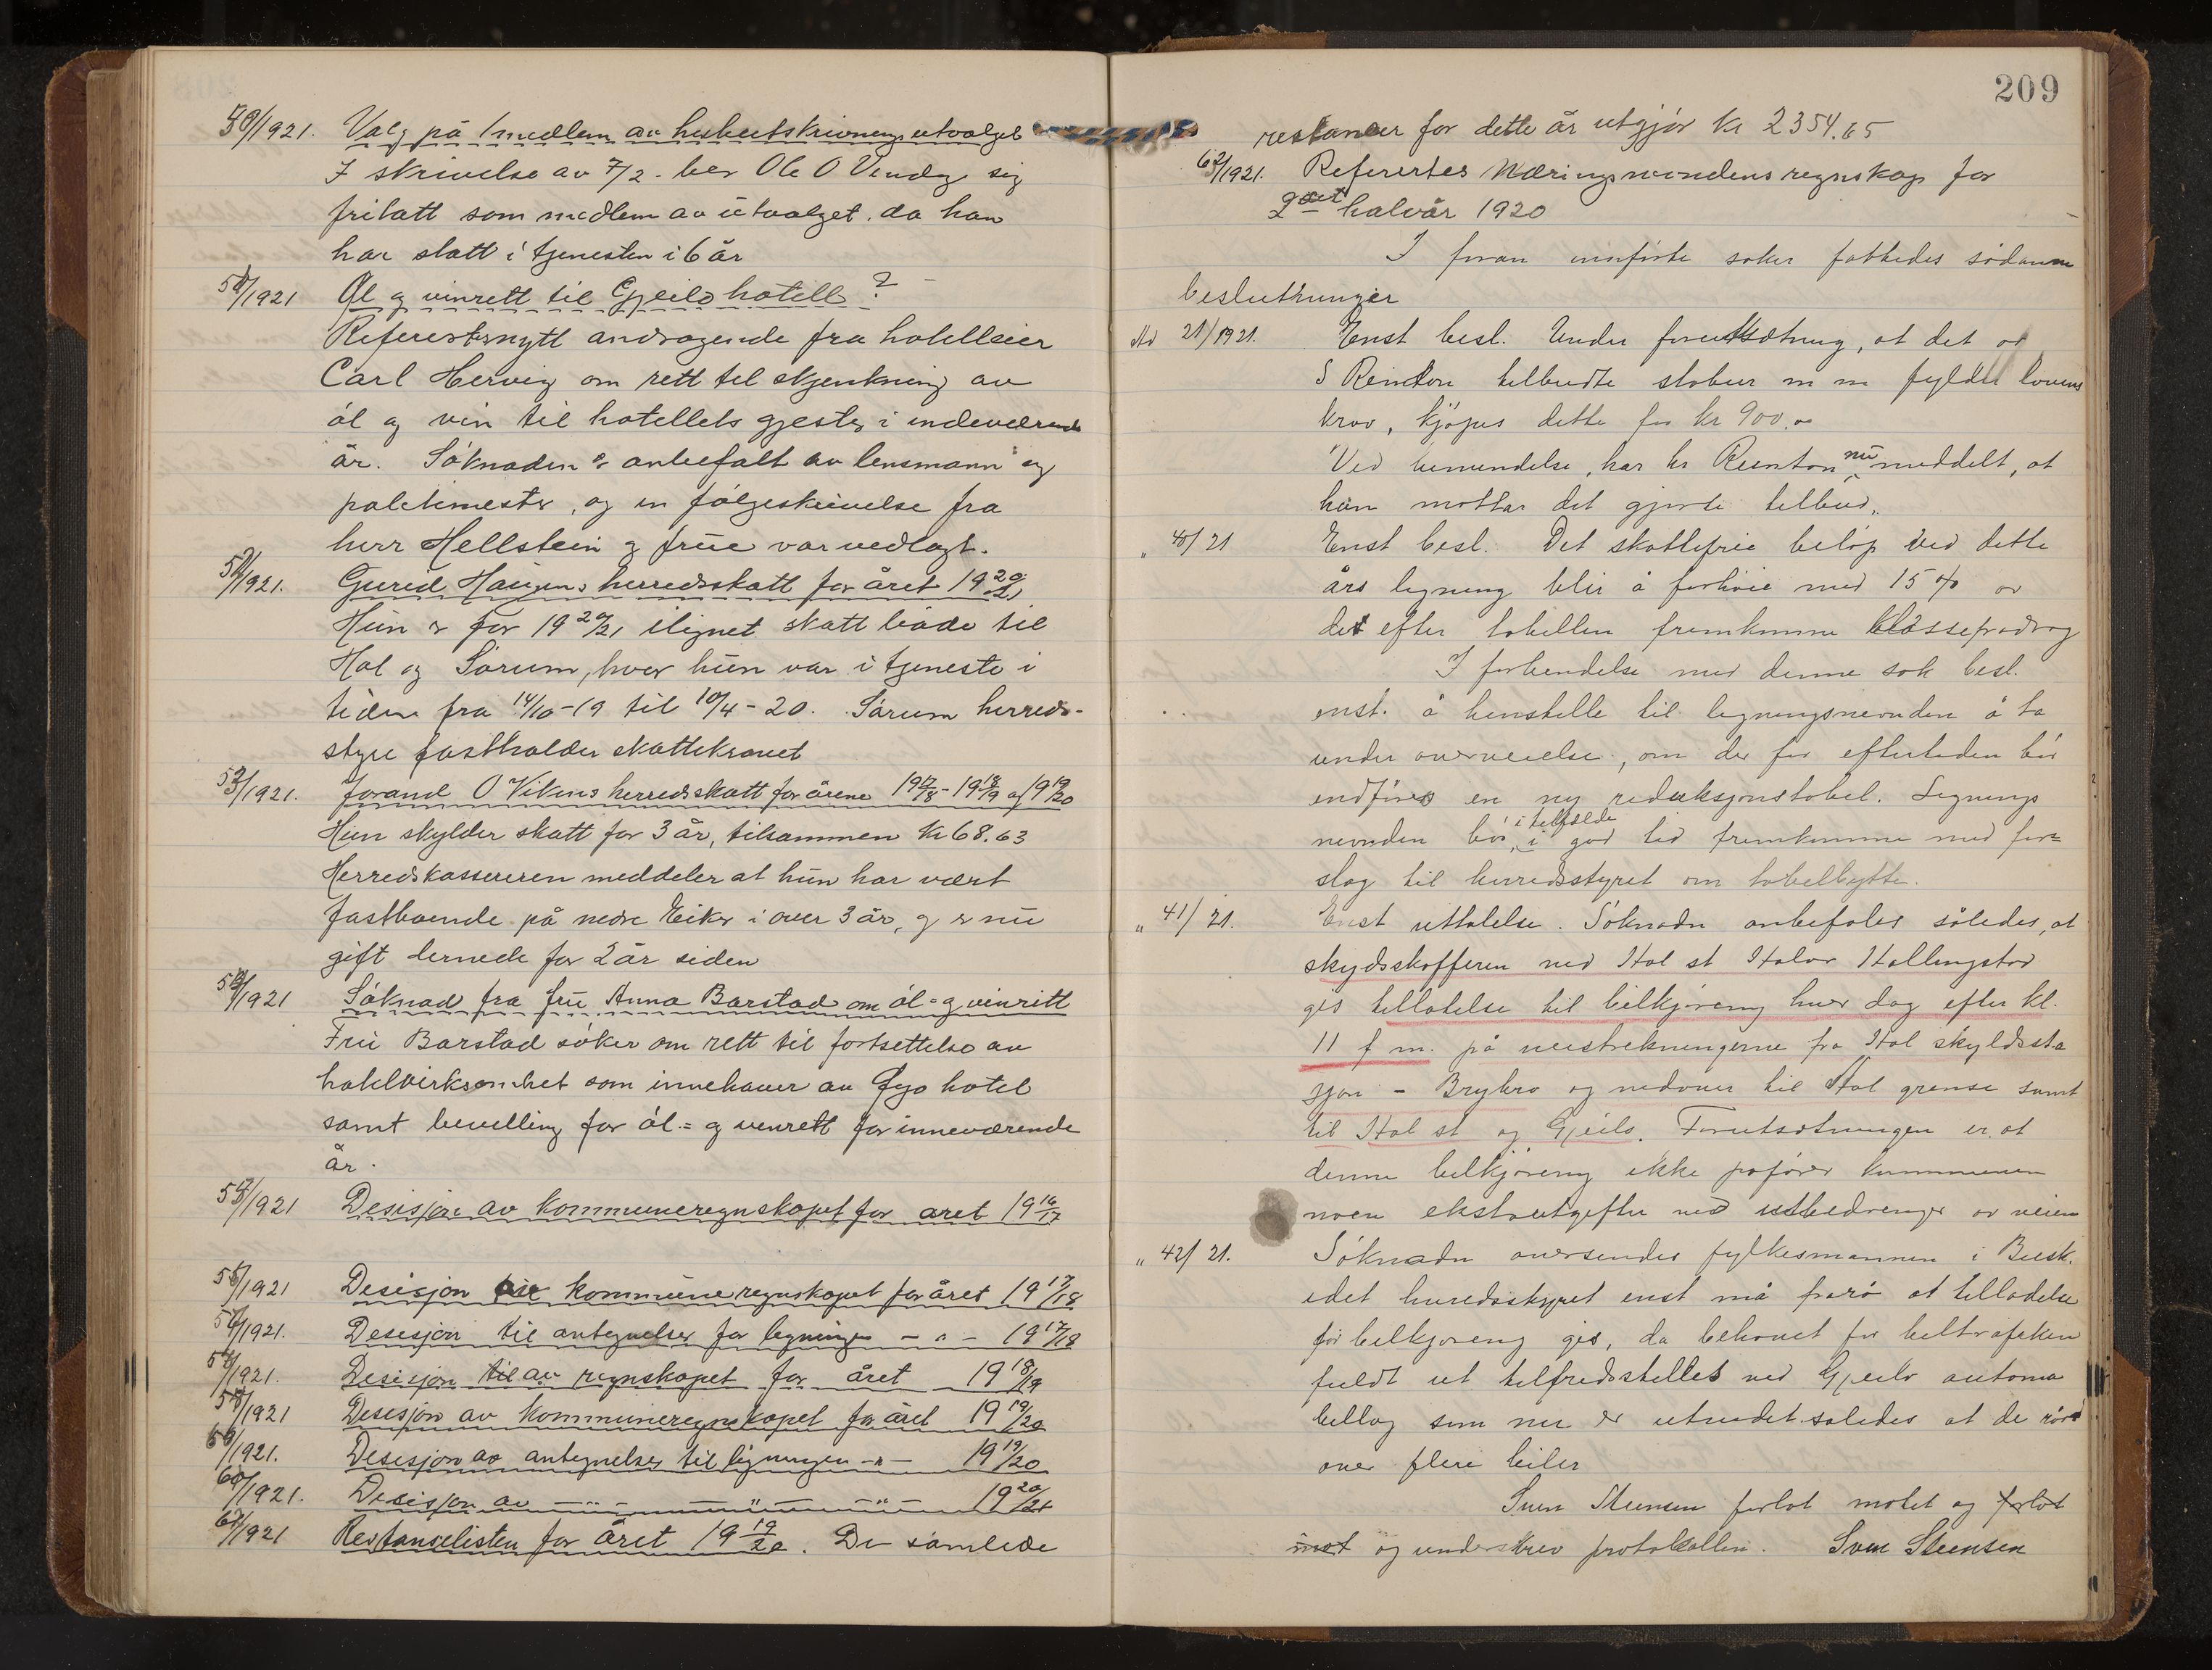 50/1921. Valg på 1 medlem av herbertskrivningsutvalget
I skrivelse av 7/2. ber Ole O Vindeg sig
fritatt som medlem av utvalget, da han
har stått i tjenesten i 6 år
51/1921 Øl og vinrett til Gjeilo hotell ?
Referertes nytt andragende fra hotelleier
Carl Hervig om rett til skjenkning av
øl og vin til hotellets gjester i indeværende
år. Søknaden er anbefalt av lensmann og
politimester, og en følgeskrivelse fra
herr Hellstein g frue var vedlagt.
52/1921. Gurid Haugens herredsskatt for året 19 20/21
Hun er for 19 20/21 ilignet skatt både til
Hol og Sørum, hvor hun var i tjeneste i
tiden fra 14/10-19 til 10/4-20. Sørum herreds-
styre fastholder skattekravet
53/1921. Jorand O Vikens herredsskatt for årene 19 17/18 - 19 18/19 og 19 19/20
Hun skylder skatt for 3 år, tilsammen kr 68.63
Herredskassereren meddeler at hun har vært
fastboende på nedre Eiker i over 3 år, g er nu
gift dernede for 2 år siden
54/1921 Søknad fra fru Anna Barstad om øl= g vinrett
Fru Barstad søker om rett til fortsettelse av
hotelvirksomhet som innehaver av Fyo hotel
samt bevilling for øl= g vinrett for inneværende
år.
55/1921 Desisjon av kommuneregnskapet for året 19 16/17
56/1921 Desisjon av kommuneregnskapet for året 19 17/18
57/1921. Desisjon til antegnelser for ligningen - " - 19 17/18
58/1921. Desisjon til av regnskapet for året 19 18/19
59/1921 Desisjon av kommuneregnskapet for året 19 19/20
60/1921. Desisjon av antegnelser til ligningen - " - 19 19/20
61/1921. Desisjon av - " - - " - - " - 19 20/21
62/1921 Restanselisten for året 19 19/20. De samlede
209
restanser for dette år utgjør kr 2354.65
63/1921. Referertes Næringsnevndens regnskap for
2det halvår 1920
I foran innførte saker fattedes sådanne
beslutninger
Ad 21/1921. Enst besl. Under forutsætning, at det av
S Reinton tilbudte stabur m m fylder lovens
krav, kjøpes dette for kr 900.00
Ved henvendelse, har hr Reinton nu meddelt, at
han mottar det gjorte tilbud.
" 40/21 Enst besl. Det skattefrie beløp ved dette
års ligning blir å forhøie med 15 % av
det efter tabellen fremkomne klassefradrag
I forbindelse med denne sak besl.
enst. å henstille til ligningsnevnden å ta
under overveielse, om der for eftertiden bør
indføres en ny reduksjonstabel. Lignings
nevnden bør i tilfælde i god tid fremkomme med for=
slag til herredsstyret om tabelbytte.
" 41/21. Enst uttalelse. Søknadn anbefales således, at
skydsskafferen ved Hol st Halvor Hallingstad
gis tillatelse til bilkjøring hver dag efter kl.
11 f m. på veistrekningerne fra Hol skyldssta
sjon - Brybro og nedover til Hol grense samt
til Hol st og Gjeilo. Forutsætningen er at
denne bilkjøring ikke påfører kommunen
noen ekstrautgifter ved utbedringer av veien
" 42/21. Søknadn oversendes fylkesmannen i Busk.
idet herredsstyret enst må frarå at tilladelse
for bilkjøring gis, da behovet for biltrafiken
fuldt ut tilfredsstilles ved Gjeilo automo
billag som nu er utvidet således at de råder
over flere biler
Sven Steensen forlot møtet og forlot
møt og underskrev protokollen. Sven Steensen